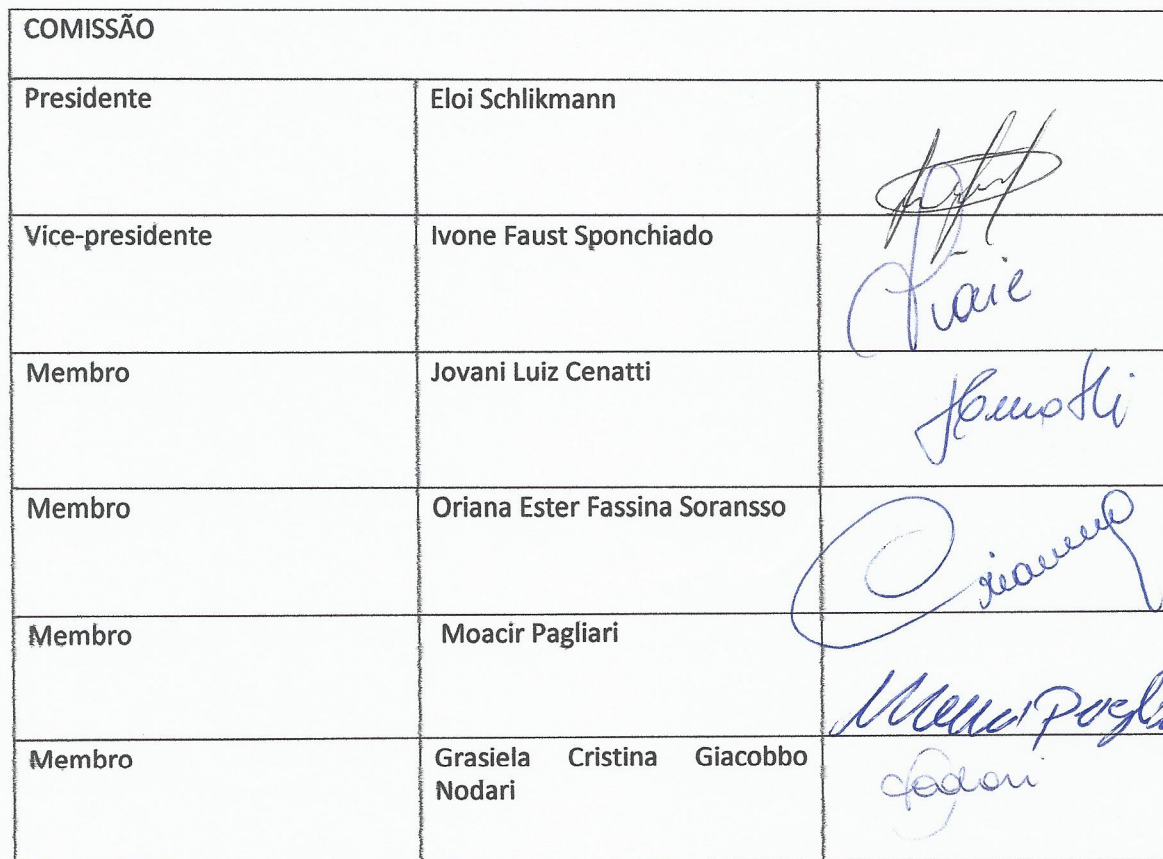 COMISSÃO
Presidente Eloi Schlikmann
Vice-presidente Ivone Faust Sponchiado
Membro Jovani Luiz Cenatti
Membro Oriana Ester Fassina Soransso
Membro Moacir Pagliari
Membro Grasiela Cristina Giacobbo
Nodari